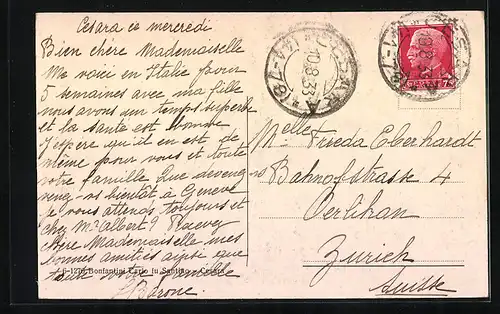 Cesara ce mercredi
Bien chère Mademoiselle
Me voici en Italie pour
5 semaines avec ma fille
nous avons un temps superbe
et la santé est bonne
j'espère qu'il en est de
même pour vous et toute
votre famille Que devenez-vs
venez-vs bientôt à Genève
je vous attends toujours et
chez Mr Albert? Recevez
chère Mademoiselle mes
bonnes amitiés ainsi que
toute votre famille
S. Barone.
4-6-1276 Bonfantini Carlo fu Santino - Cesara
CESARA
10.8.33
Melle Frieda Eberhardt
Bahnhofstrasse 4
Oerlikon
Zurich
Suisse